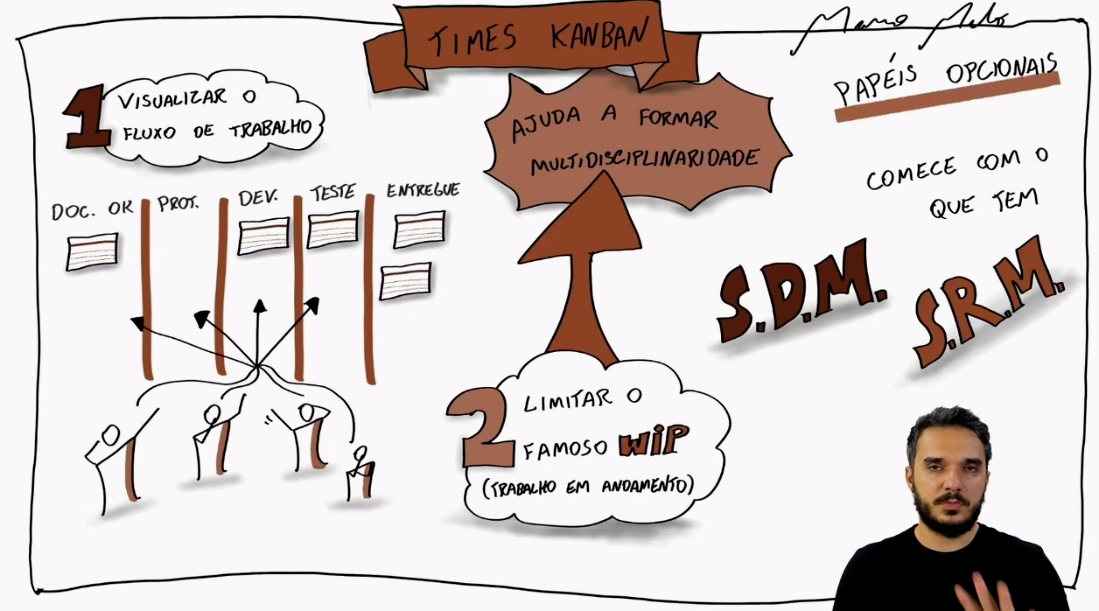 TIMES KANBAN
1
VISUALIZAR O
FLUXO DE TRABALHO
DOC. OK
PROT.
DEV.
TESTE
ENTREGUE
AJUDA A FORMAR
MULTIDISCIPLINARIDADE
2
LIMITAR O
FAMOSO WiP
(TRABALHO EM ANDAMENTO)
PAPÉIS OPCIONAIS
COMECE COM O
QUE TEM
S.D.M.
S.R.M.